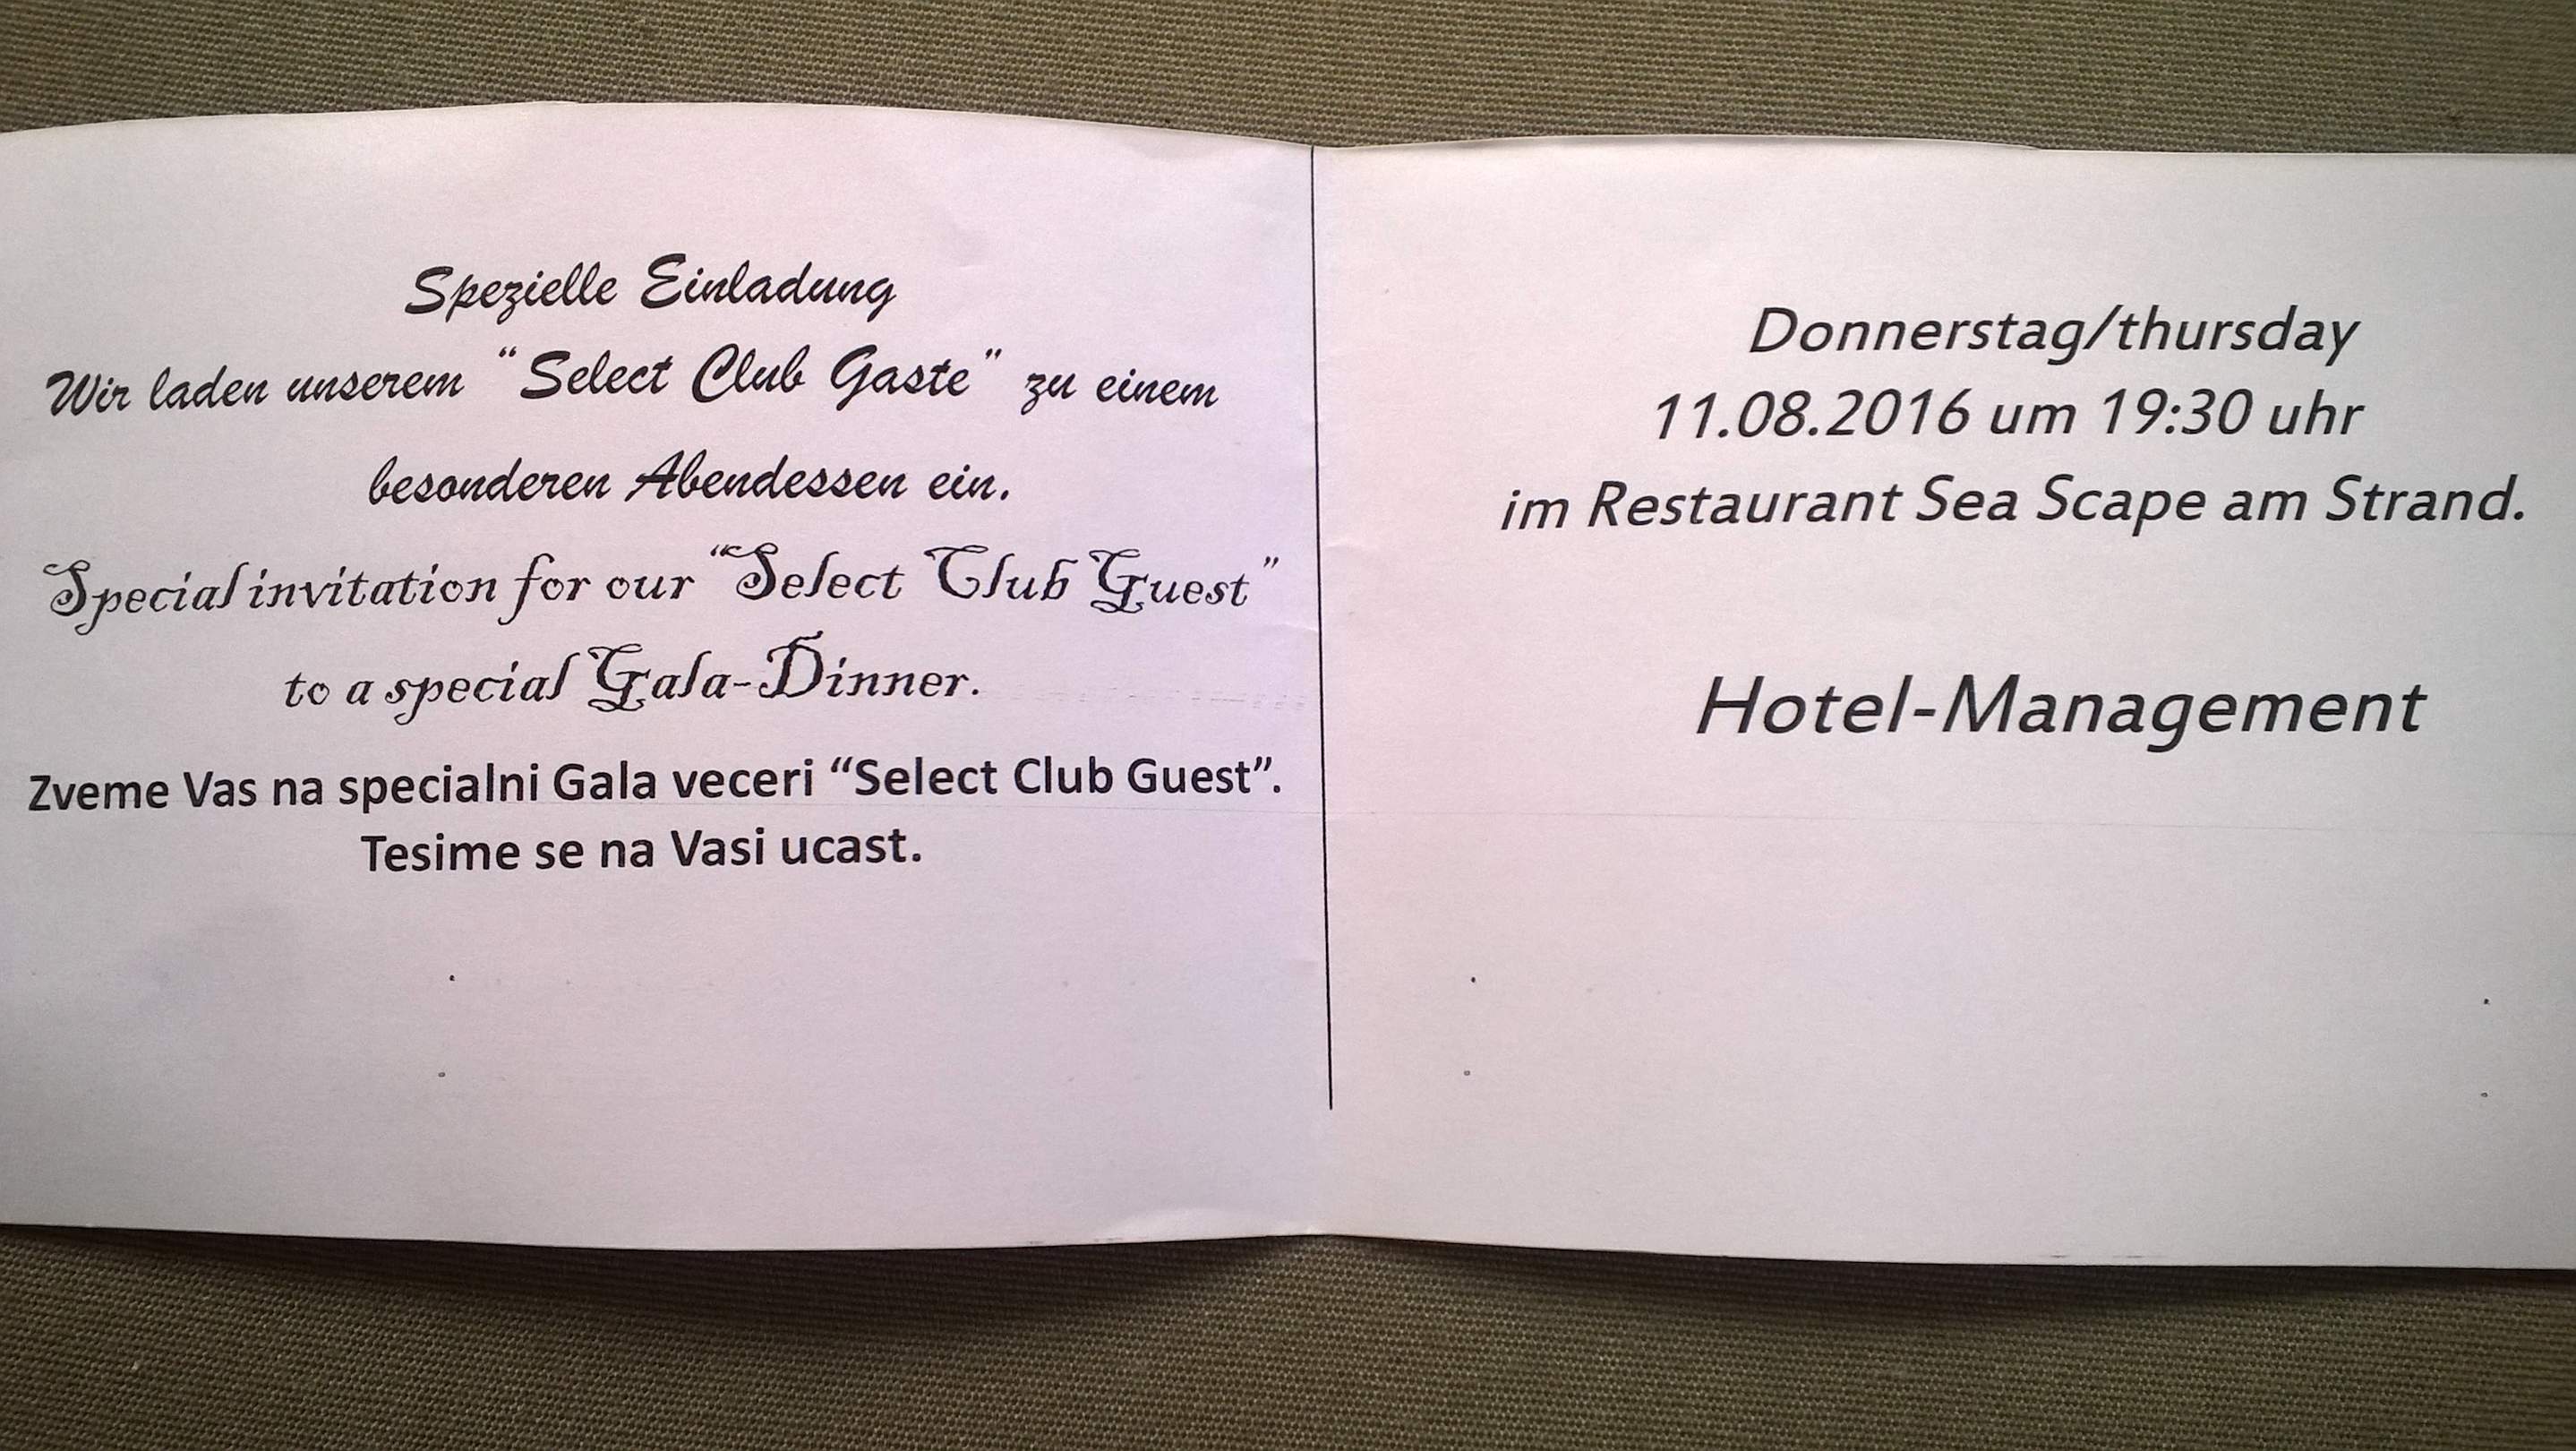 Spezielle Einladung
Wir laden unserem “Select Club Gaste” zu einem
besonderen Abendessen ein.
Special invitation for our “Select Club Guest”
to a special Gala-Dinner.
Zveme Vas na specialni Gala veceri “Select Club Guest”.
Tesime se na Vasi ucast.
Donnerstag/thursday
11.08.2016 um 19:30 uhr
im Restaurant Sea Scape am Strand.
Hotel-Management